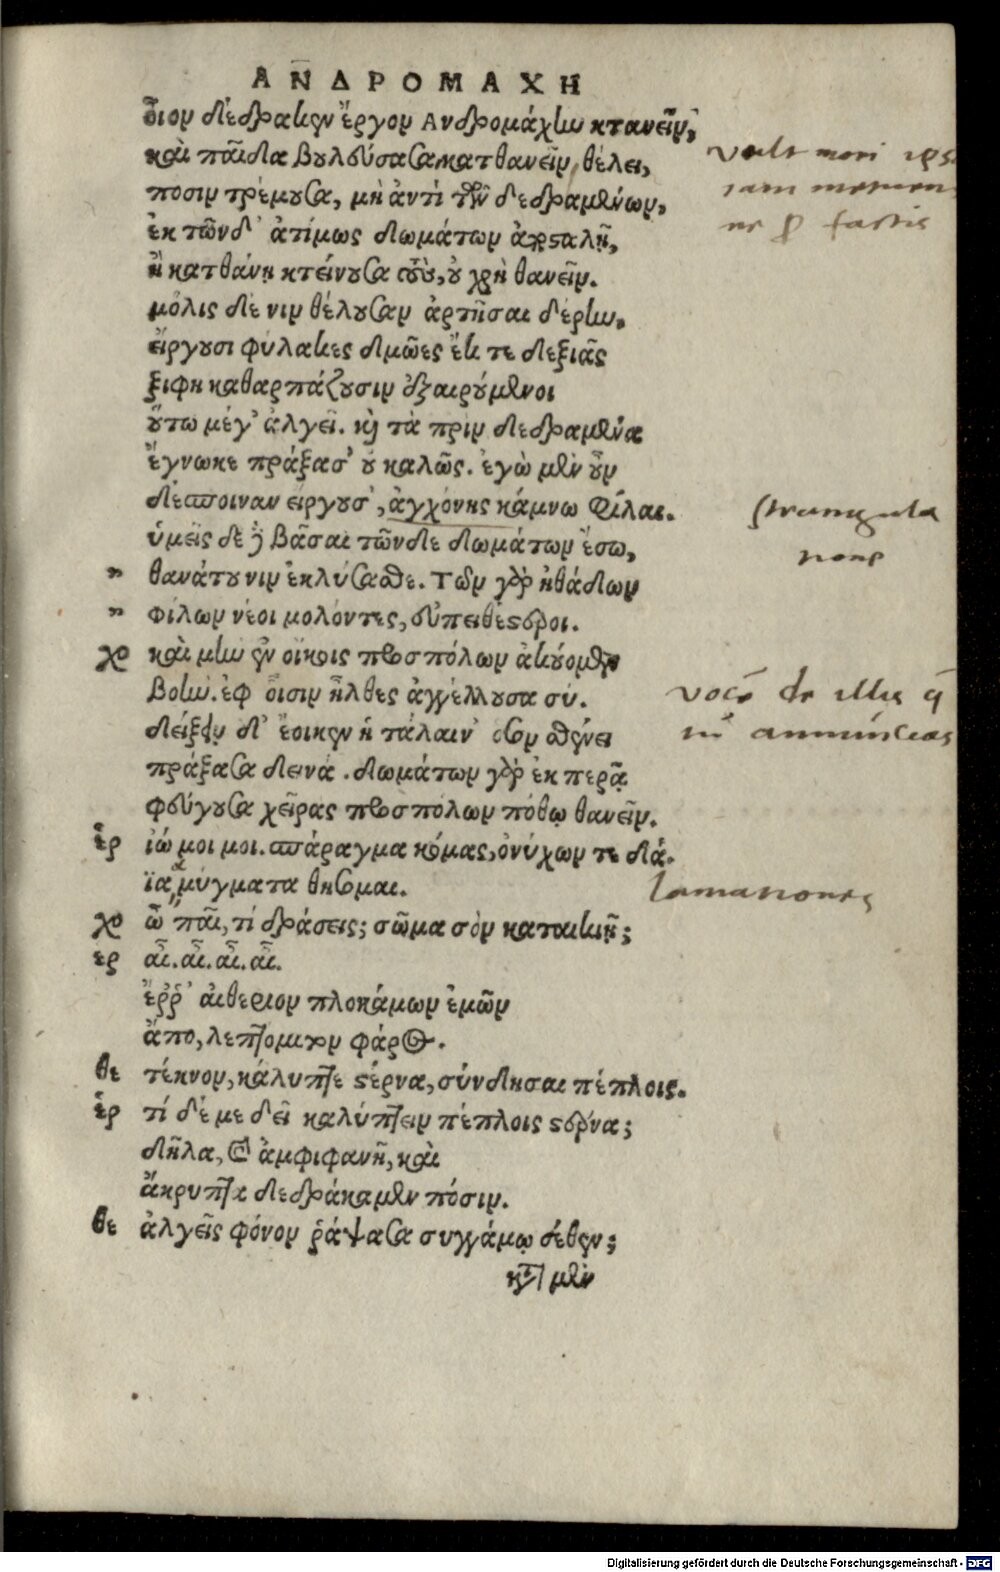 ΑΝΔΡΟΜΑΧΗ
οἷον δέδρακεν ἔργον Ανδρομάχην κτανεῖν,
καὶ παῖδα βουλεύσασα κατθανεῖν θέλει,
ποσιν τρέμουσα, μὴ ἀντὶ τῶν δεδραμένων,
ἐκ τῶνδ' ἀτίμως δωμάτων ἀποσαλῇ,
ἢ κατθάνῃ κτείνουσα τοὺς, οὐ χρὴ θανεῖν.
μόλις δὲ νιν θέλουσαν ἀρτῆσαι δέρην,
εἴργουσι φύλακες δμῶες ἔκ τε δεξιᾶς
ξιφη καθαρπάζουσιν ἐξαιρούμενοι
οὕτω μέγ' ἀλγεῖ. καὶ τὰ πριν δεδραμένα
ἔγνωκε πράξασ' οὐ καλῶς. ἐγὼ μὲν οὖν
δέσποιναν εἴργουσ', ἀγχόνης κάμνω φίλαι.
strangula
ὑμεῖς δὲ βᾶσαι τῶνδε δωμάτων ἔσω,
nonr
" θανάτου νιν ἐκλύσασθε. Τῶν γὰρ ἠθάδων
" φίλων νέοι μολόντες, εὐπειθέστεροι.
χο καὶ μὴν ἐν οἴκοις προσπόλων ἀκούομεν
βοὴν. ἐφ οἷσιν ἦλθες ἀγγέλλουσα σύ.
δείξειν δ' ἔοικεν ἡ τάλαιν' ὅσον σθένει
πράξασα δεινά. δωμάτων γὰρ ἐκ περᾷ
φεύγουσα χεῖρας προσπόλων πόθῳ θανεῖν.
ἑρ ἰώ μοι μοι. σπάραγμα κόμας, ὀνύχων τε δά-
ϊα ἀμύγματα θήσομαι.
χο ὦ παῖ, τί δράσεις; σῶμα σὸν καταικιῇ;
ερ αἶ. αἶ. αἶ. αἶ.
ἔρρ' αἰθέριον πλοκάμων ἐμῶν
ἄπο, λεπτόμιτον φάρος.
θε τέκνον, κάλυπτε στέρνα, σύνδησαι πέπλοις.
ἑρ τί δέ με δεῖ καλύπτειν πέπλοις στέρνα;
δῆλα, καὶ ἀμφιφανῆ, καὶ
ἄκρυπτα δεδράκαμεν πόσιν.
θε ἀλγεῖς φόνον ῥάψασα συγγάμῳ σέθεν;
κτ μὲν
Digitalisierung gefördert durch die Deutsche Forschungsgemeinschaft - DFG